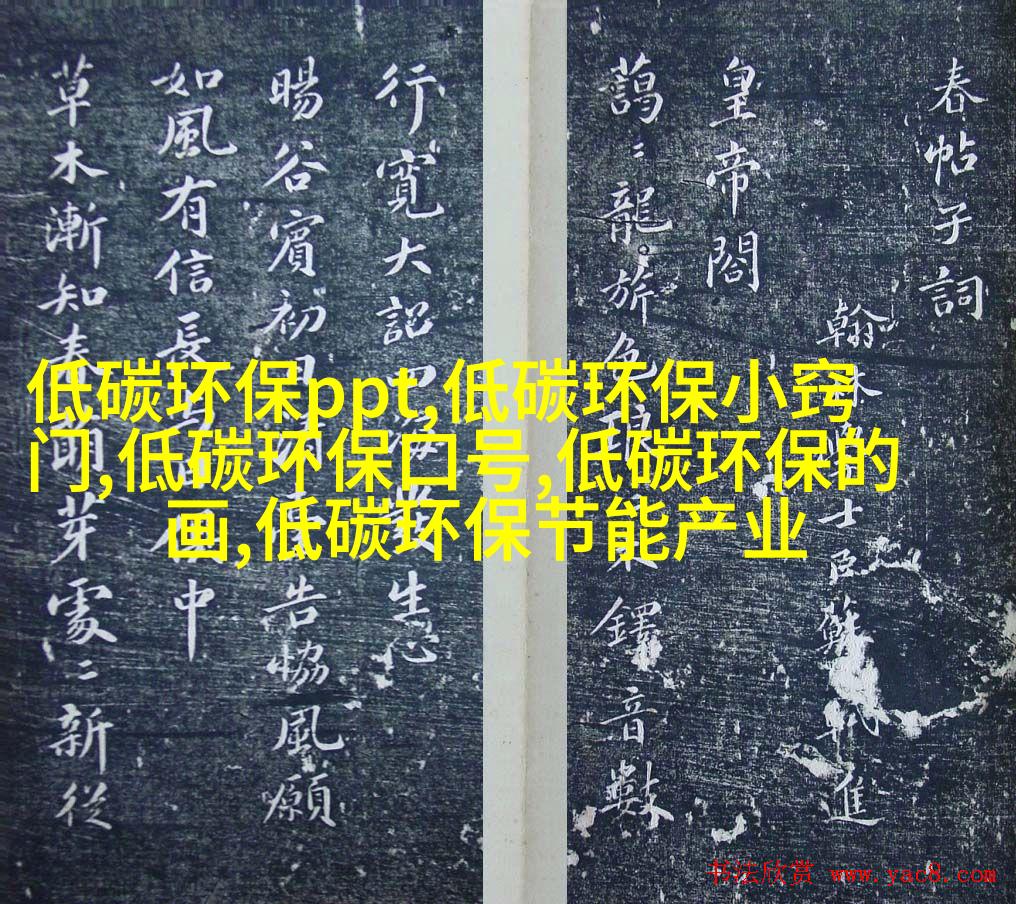 春帖子詞
翰林學士臣蘇軾進
皇帝閣
藹〻龍旂色琅鐸音數
行寬大詔四海發生心
暘谷賓初日清告協風願
如風有信長與日中
草木漸知春萌芽處〻新從
低碳环保ppt,低碳环保小窍
门,低碳环保口号,低碳环保的
画,低碳环保节能产业
书法欣赏 www.yac8.com